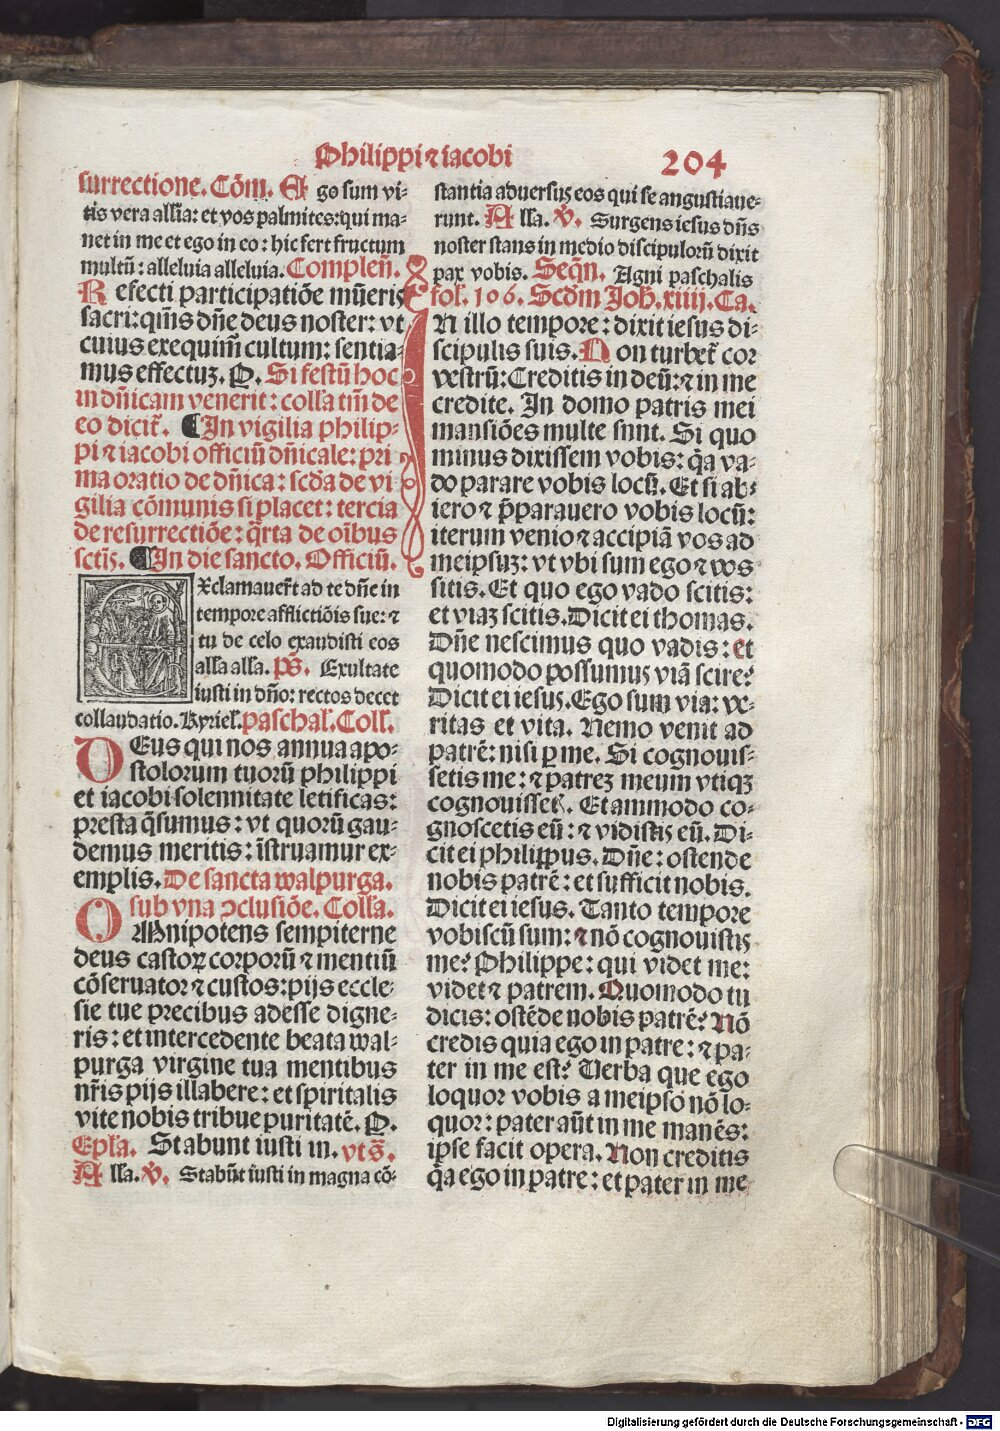 Philippi ⁊ iacobi
204
surrectione. Cõm. Ego sum vi-
tis vera allĩa: et vos palmites: qui ma-
net in me et ego in eo: hic fert fructum
multũ: alleluia alleluia. Compleñ.
Refecti participatiõe mũeris
sacri: q̃ms dñe deus noster: vt
cuius exequim̃ cultum: sentia-
mus effectuʒ. P. Si festũ hoc
in dñicam venerit: colľa tm̃ de
eo dicit̃. ¶ In vigilia philip-
pi ⁊ iacobi officiũ dñicale: pri
ma oratio de dñica: scďa de vi-
gilia cõmunis si placet: tercia
de resurrectiõe: q̃rta de oĩbus
sctĩs. ¶ In die sancto. Officiũ.
EXclamauer̃t ad te dñe in
tempore afflictiõis sue: ⁊
tu de celo exaudisti eos
alľa alľa. pš. Exultate
iusti in dño: rectos decet
collaudatio. Kyrieľ. paschaľ. Colľ.
DEus qui nos annua apo-
stolorum tuorũ philippi
et iacobi solennitate letificas:
presta q̃sumus: vt quorũ gau-
demus meritis: ĩstruamur ex-
emplis. De sancta walpurga.
sub vna ↄclusiõe. Colľa.
OMnipotens sempiterne
deus castoꝝ corporũ ⁊ mentiũ
cõseruator ⁊ custos: pijs eccle-
sie tue precibus adesse digne-
ris: et intercedente beata wal-
purga virgine tua mentibus
nr̃is pijs illabere: et spiritalis
vite nobis tribue puritatẽ. P.
Epľa. Stabunt iusti in. vt š.
Alľa. v̓. Stabũt iusti in magna cõ-
stantia aduersuʒ eos qui se angustiaue-
runt. Alľa. v̓. Surgens iesus dñs
noster stans in medio discipulorũ dixit
pax vobis. Seq̃n. Agni paschalis
foľ. 106. Scďm Joh̃. xiiij. Ca.
IN illo tempore: dixit iesus di-
scipulis suis. Non turbet̃ cor
vestrũ: Creditis in deũ: ⁊ in me
credite. In domo patris mei
mansiões multe snnt. Si quo
minus dixissem vobis: q̃a va-
do parare vobis locũ. Et si ab-
iero ⁊ p̃parauero vobis locũ:
iterum venio ⁊ accipiã vos ad
meipsuʒ: vt vbi sum ego ⁊ vos
sitis. Et quo ego vado scitis:
et viaʒ scitis. Dicit ei thomas.
Dñe nescimus quo vadis: et
quomodo possumus viã scire?
Dicit ei iesus. Ego sum via: ve-
ritas et vita. Nemo venit ad
patrẽ: nisi ꝑ me. Si cognouis-
setis me: ⁊ patreʒ meum vtiqʒ
cognouissetꝭ. Et ammodo co-
gnoscetis eũ: ⁊ vidistꝭ eũ. Di-
cit ei philippus. Dñe: ostende
nobis patrẽ: et sufficit nobis.
Dicit ei iesus. Tanto tempore
vobiscũ sum: ⁊ nõ cognouistꝭ
me? Philippe: qui videt me:
videt ⁊ patrem. Quomodo tu
dicis: ostẽde nobis patrẽ? Nõ
credis quia ego in patre: ⁊ pa-
ter in me est? Verba que ego
loquor vobis a meipso nõ lo-
quor: pater aũt in me manẽs:
ipse facit opera. Non creditis
q̃a ego in patre: et pater in me
Digitalisierung gefördert durch die Deutsche Forschungsgemeinschaft - DFG